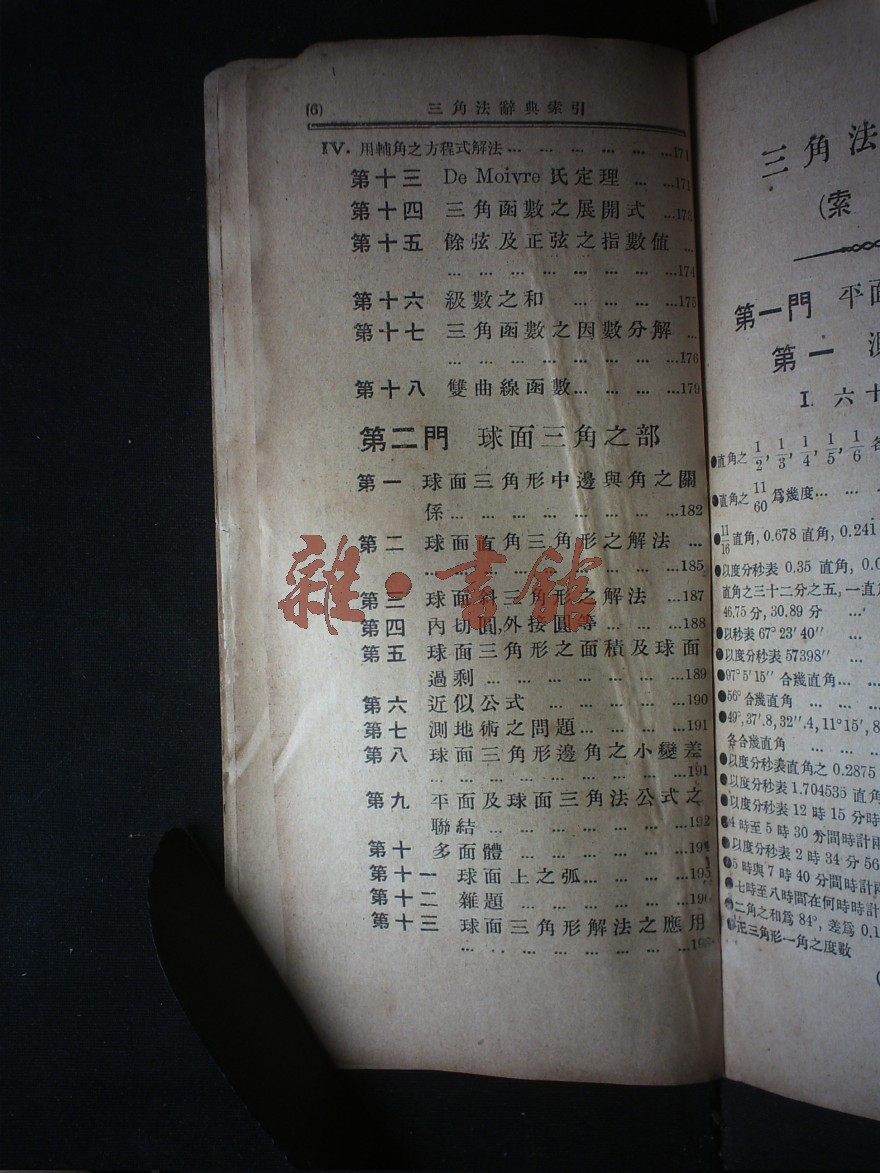 (6) 三角法辭典索引
IV. 用輔角之方程式解法 … … … … … …171
第十三 De Moivre 氏定理 … …171
第十四 三角函數之展開式 …173
第十五 餘弦及正弦之指數値 …
… … … … … … … …174
第十六 級數之和 … … … …175
第十七 三角函數之因數分解 …
… … … … … … … …176
第十八 雙曲線函數… … … …179
第二門 球面三角之部
第一 球面三角形中邊與角之關
係… … … … … … … …182
第二 球面直角三角形之解法 …
… … … … … … … … …185
第三 球面斜三角形之解法 …187
第四 內切圓,外接圓等… … …188
第五 球面三角形之面積及球面
過剩 … … … … … … …189
第六 近似公式 … … … … …190
第七 測地術之問題… … … …191
第八 球面三角形邊角之小變差
… … … … … … … … …191
第九 平面及球面三角法公式之
聯結 … … … … … … …192
第十 多面體 … … … … …
第十一 球面上之弧… … … …195
第十二 雜題 … … … … …
第十三 球面三角形解法之應用
… … … … … … …
雜·書館
三角法
(索
第一門 平面
第一 測
I. 六十
●直角之 1/2, 1/3, 1/4, 1/5, 1/6 各
●直角之 11/60 爲幾度… … …
●11/16 直角, 0.678 直角, 0.241
●以度分秒表 0.35 直角, 0.0
直角之三十二分之五, 一直角
46.75 分, 30.89 分 …
●以秒表 67° 23′ 40″ …
●以度分秒表 57398″ … …
●97° 5′ 15″ 合幾直角… …
●56° 合幾直角 … … …
●49°, 37′.8, 32″.4, 11° 15′, 8
各合幾直角 … … …
●以度分秒表直角之 0.2875
●以度分秒表 1.704535 直角
●以度分秒表 12 時 15 分時
●4 時至 5 時 30 分間時計兩
●以度分秒表 2 時 34 分 56
●5 時與 7 時 40 分間時計兩
●七時至八時間在何時時計
●二角之和爲 84°, 差爲 0.1
●正三角形一角之度數
(